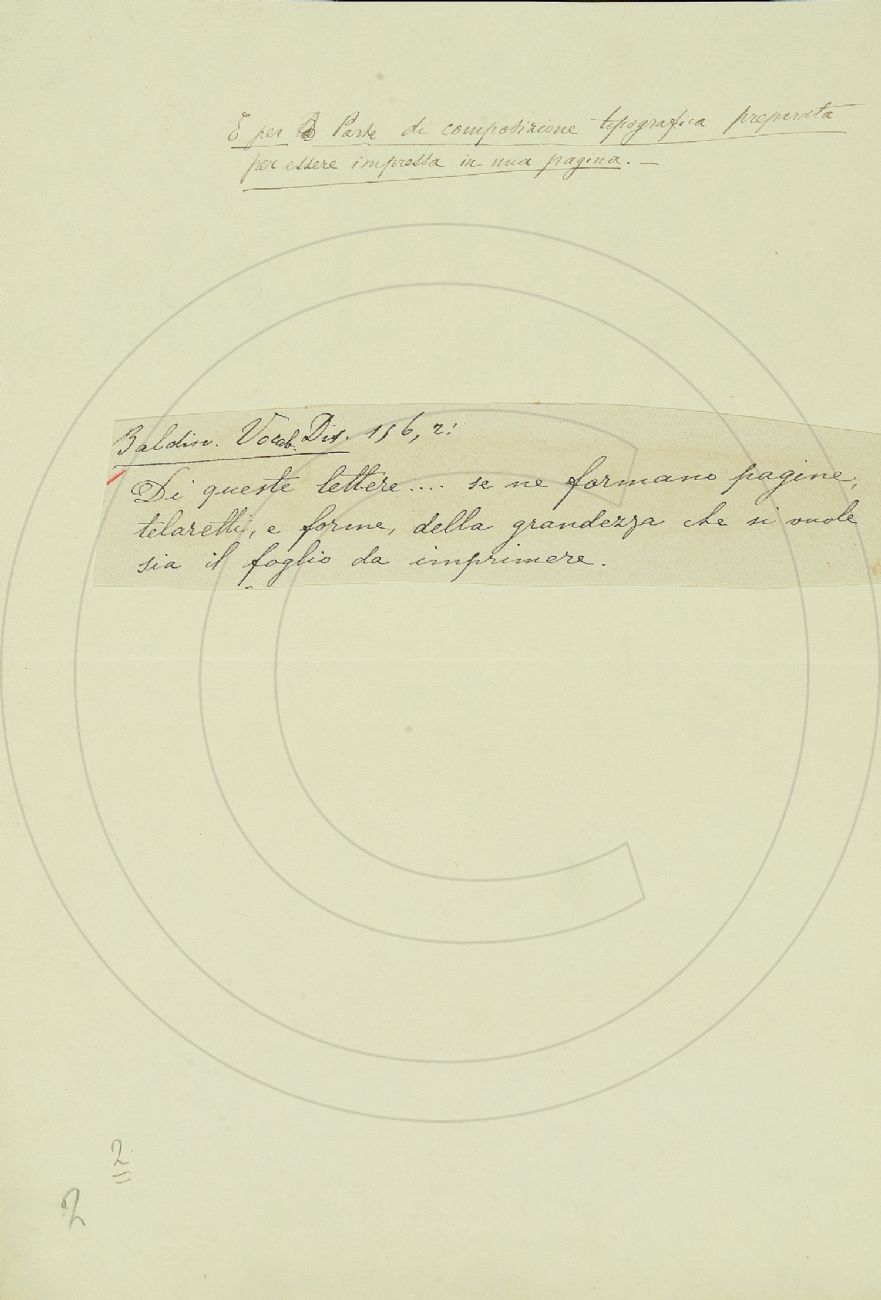 E per Parte di composizione tipografica preparata
per essere impressa in una pagina. —
Baldin. Vocab. Dis. 116, 2:
Di queste lettere.... se ne formano pagine,
telaretti, e forme, della grandezza che si vuole
sia il foglio da imprimere.
2
2